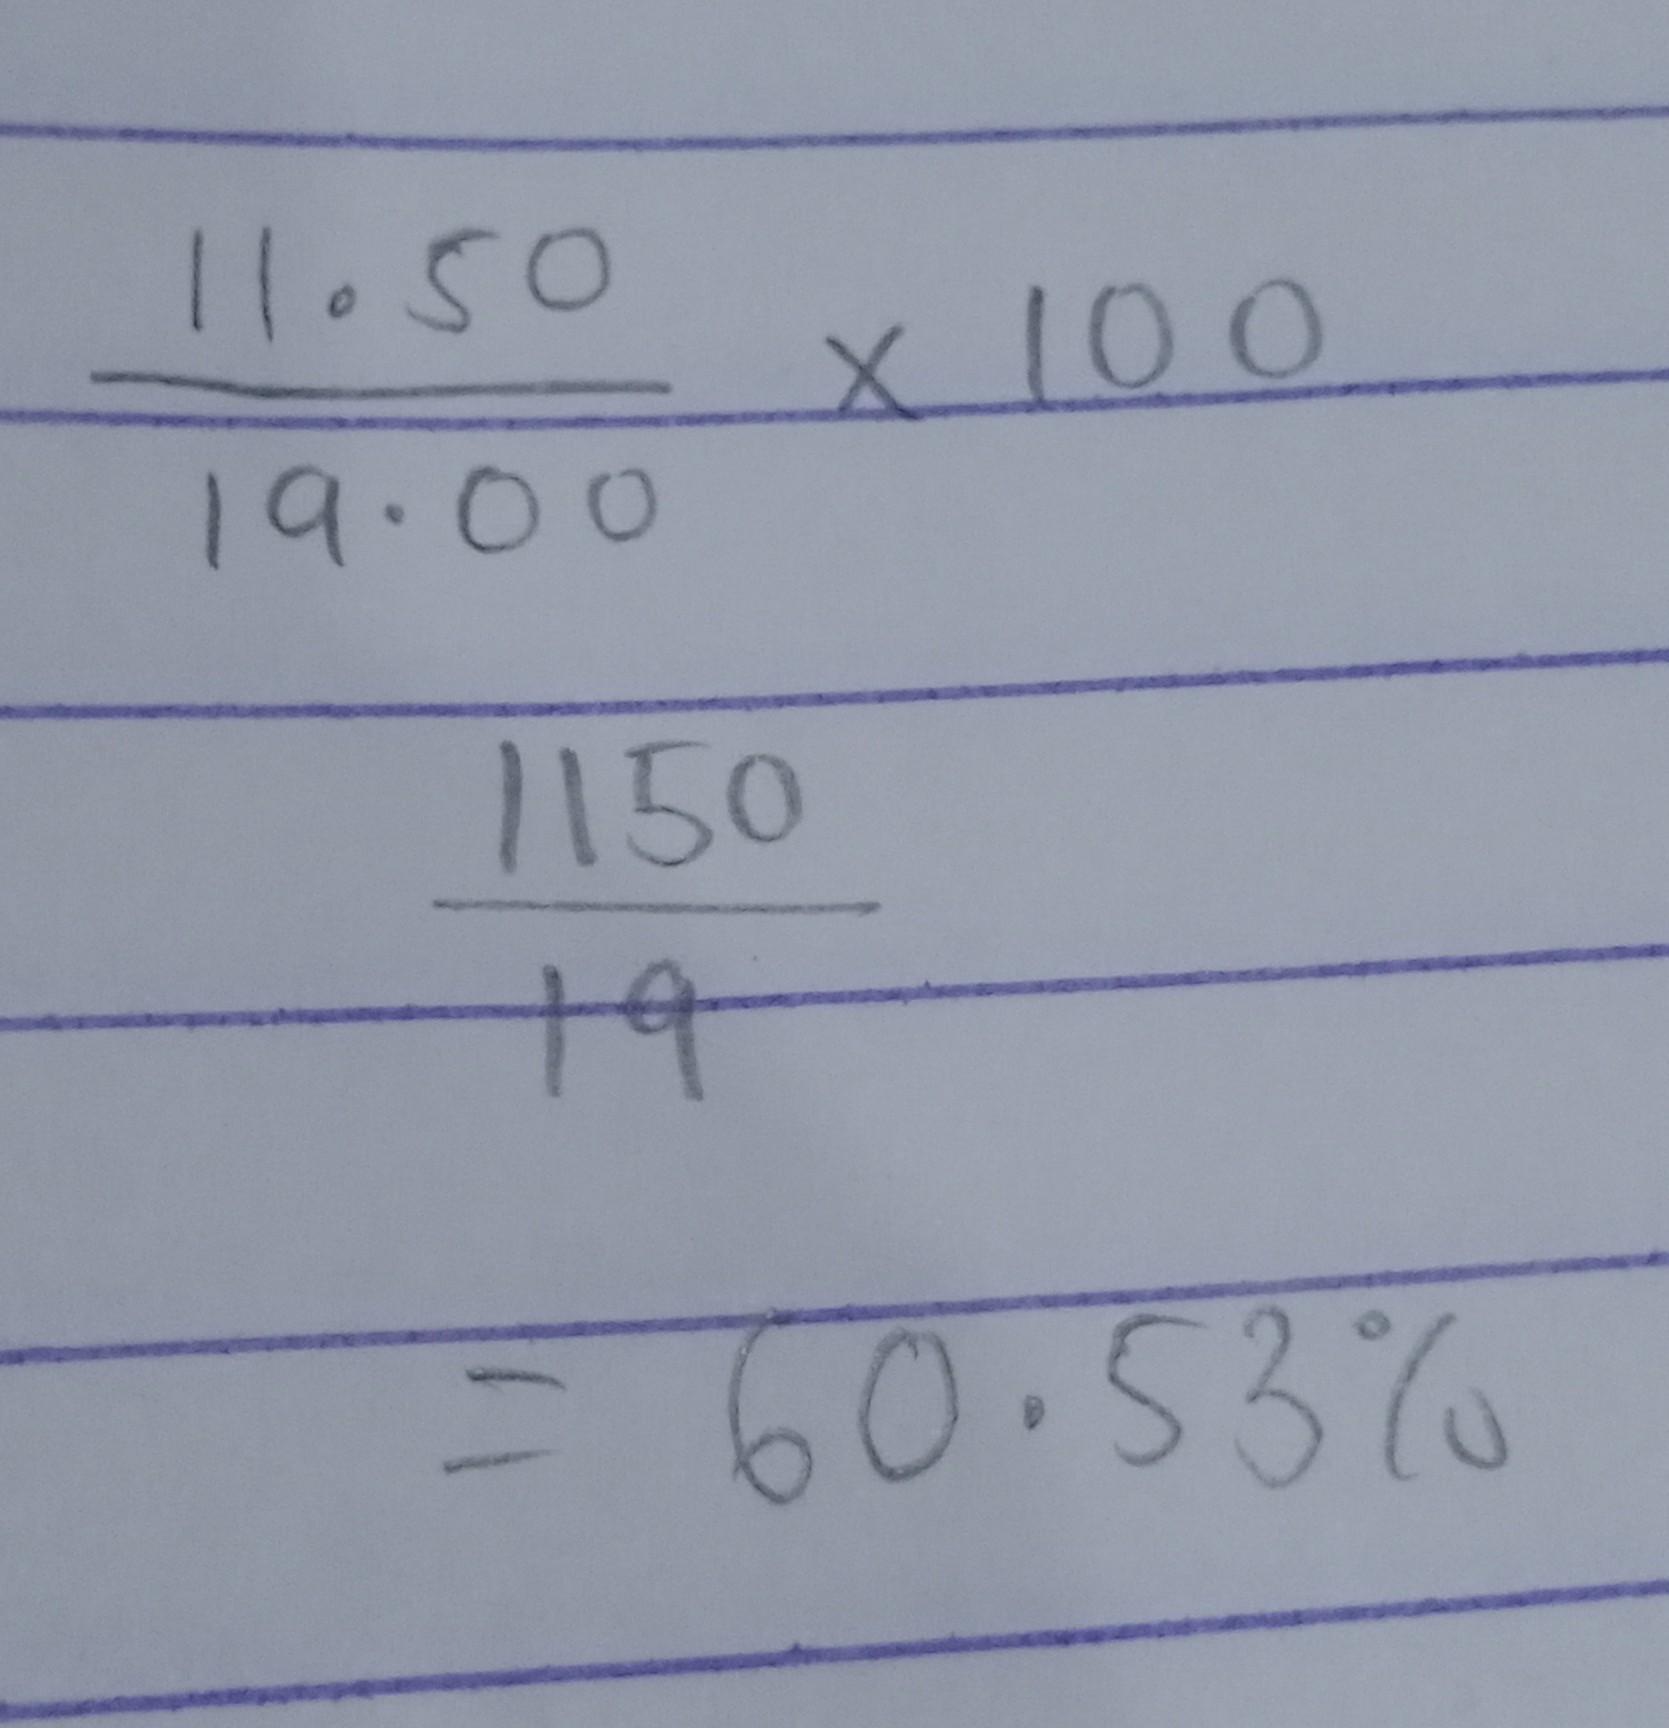 11.50
19.00 x 100
1150
19
= 60.53%